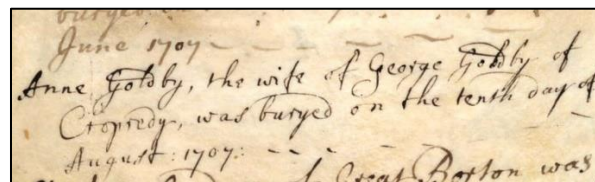 buryed
June 1707 - - - - -
Anne Goldby, the wife of George Goldby of
Cropredy, was buryed on the tenth day of
August : 1707: - - - -
of Great Borton was